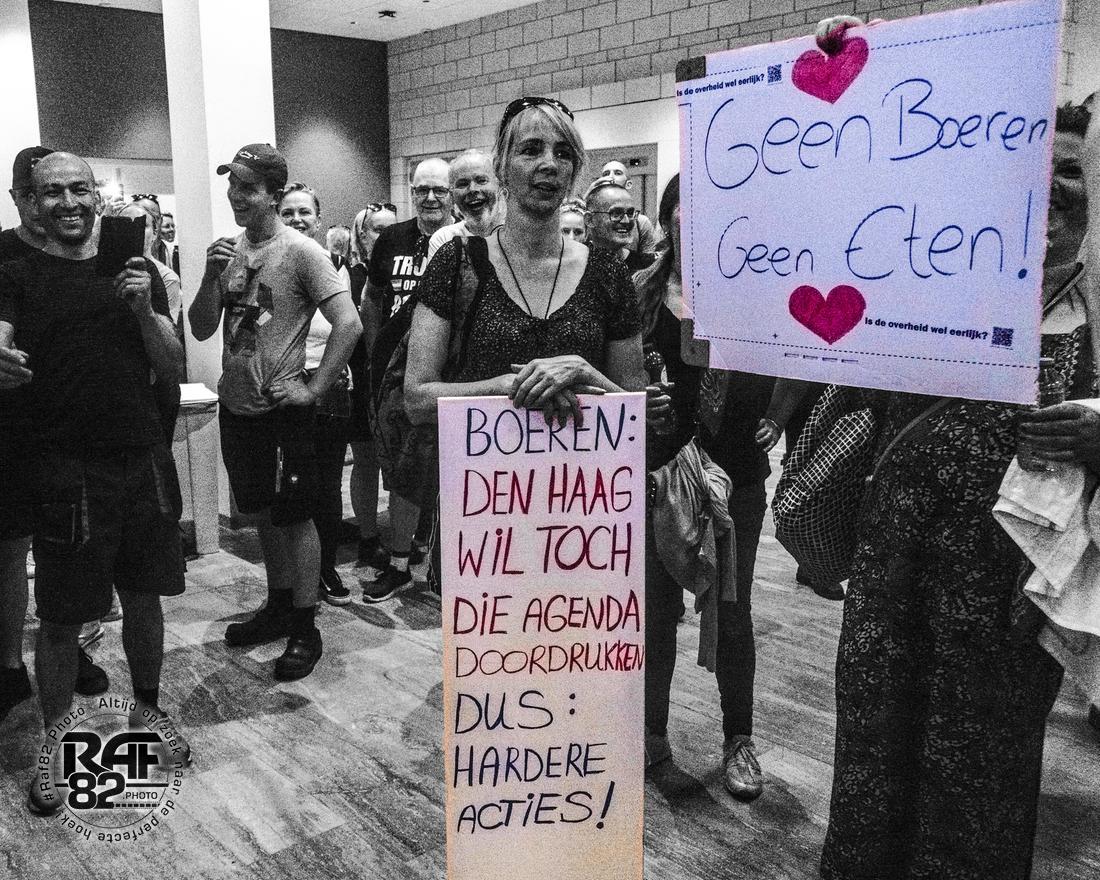 Is de overheid wel eerlijk?
Geen Boeren
Geen Eten!
Is de overheid wel eerlijk?
TRO
OP
BOEREN:
DEN HAAG
WIL TOCH
DIE AGENDA
DOORDRUKKEN
DUS:
HARDERE
ACTIES!
#Raf82 Photo Altijd op zoek naar de perfecte hoek!
RAF
82 PHOTO